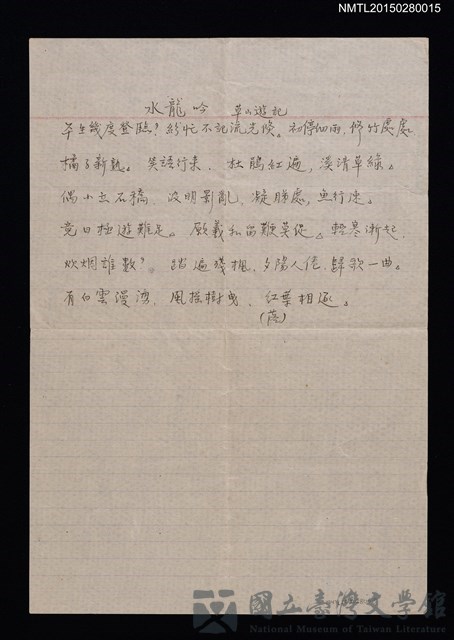 NMTL20150280015
水龍吟 草山遊記
平生幾度登臨？紛忙不記流光喚。初停細雨，修竹處處，
橘子新熟。笑語行來，杜鵑紅遍，溪清草綠。
偶小立石橋，波明影亂，凝勝處，魚行速。
竟日極遊難足。願羲和留難莫促。輕寒漸起，
炊烟誰數？踏遍殘楓，夕陽人倦，歸歌一曲。
有白雲漫湾，風搖樹曳，紅葉相逐。
(落)
國立臺灣文學館
National Museum of Taiwan Literature